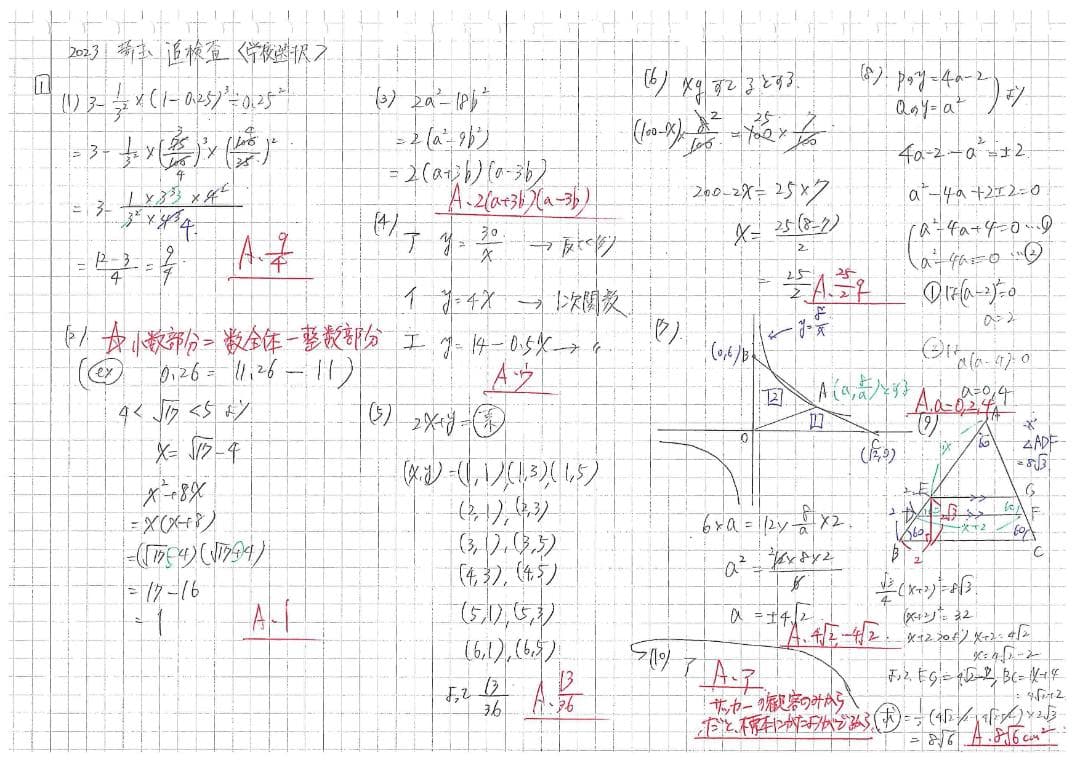 2023 埼玉 追検査〈学校選択〉
1
(1) 3-1/3²×(1-0.25)³÷0.25²
=3-1/3²×(75/100)³×(100/25)²
=3-(1×3³×4²)/(3²×4³)
=(12-3)/4=9/4
A.9/4
(2) ☆小数部分=数全体-整数部分
(ex) 0.26=11.26-11)
4<√17<5 より
x=√17-4
x²+8x
=x(x+8)
=(√17-4)(√17+4)
=17-16
=1
A.1
(3) 2a²-18b²
=2(a²-9b²)
=2(a+3b)(a-3b)
A.2(a+3b)(a-3b)
(4)
ア y=30/x →反比例
イ y=4x →1次関数
エ y=14-0.5x→〃
A.ウ
(5) 2x+y=素
(x,y)=(1,1)(1,3)(1,5)
(2,1),(2,3)
(3,1),(3,5)
(4,3),(4,5)
(5,1),(5,3)
(6,1),(6,5)
よって 13/36
A.13/36
(6) xgすてるとする
(100-x)×8/100=100×7/100
2
25
200-2x=25×7
x=25(8-7)/2
=25/2
A.25/2 g
(7)
y=8/x
(0,6)B
A(a,8/a)とする
2
1
O
C
(12,0)
6×a=12×8/a×2
a²=(12×8×2)/6
a=±4√2
A.4√2,-4√2
(8) Pのy=4a-2
Qのy=a²
より
4a-2-a²=±2
a²-4a+2±2=0
a²-4a+4=0…①
a²-4a=0…②
①は(a-2)²=0
a=2
②は
a(a-4)=0
a=0,4
A.a=0,2,4
(9)
A
60
x
△ADF
=8√3
E
G
2
D
F
2√3
60
x+2
B
60
60
C
2
√3/4(x+2)²=8√3
(x+2)²=32
x+2>0より x+2=4√2
x=4√2-2
よって EG=4√2-2, BC=x+4
=4√2+2
求=1/2(4√2-2+4√2+2)×2√3
=8√6
A.8√6cm²
(10) ア
A.ア
サッカーの観客のみから
だと、標本にかたよりがでるから